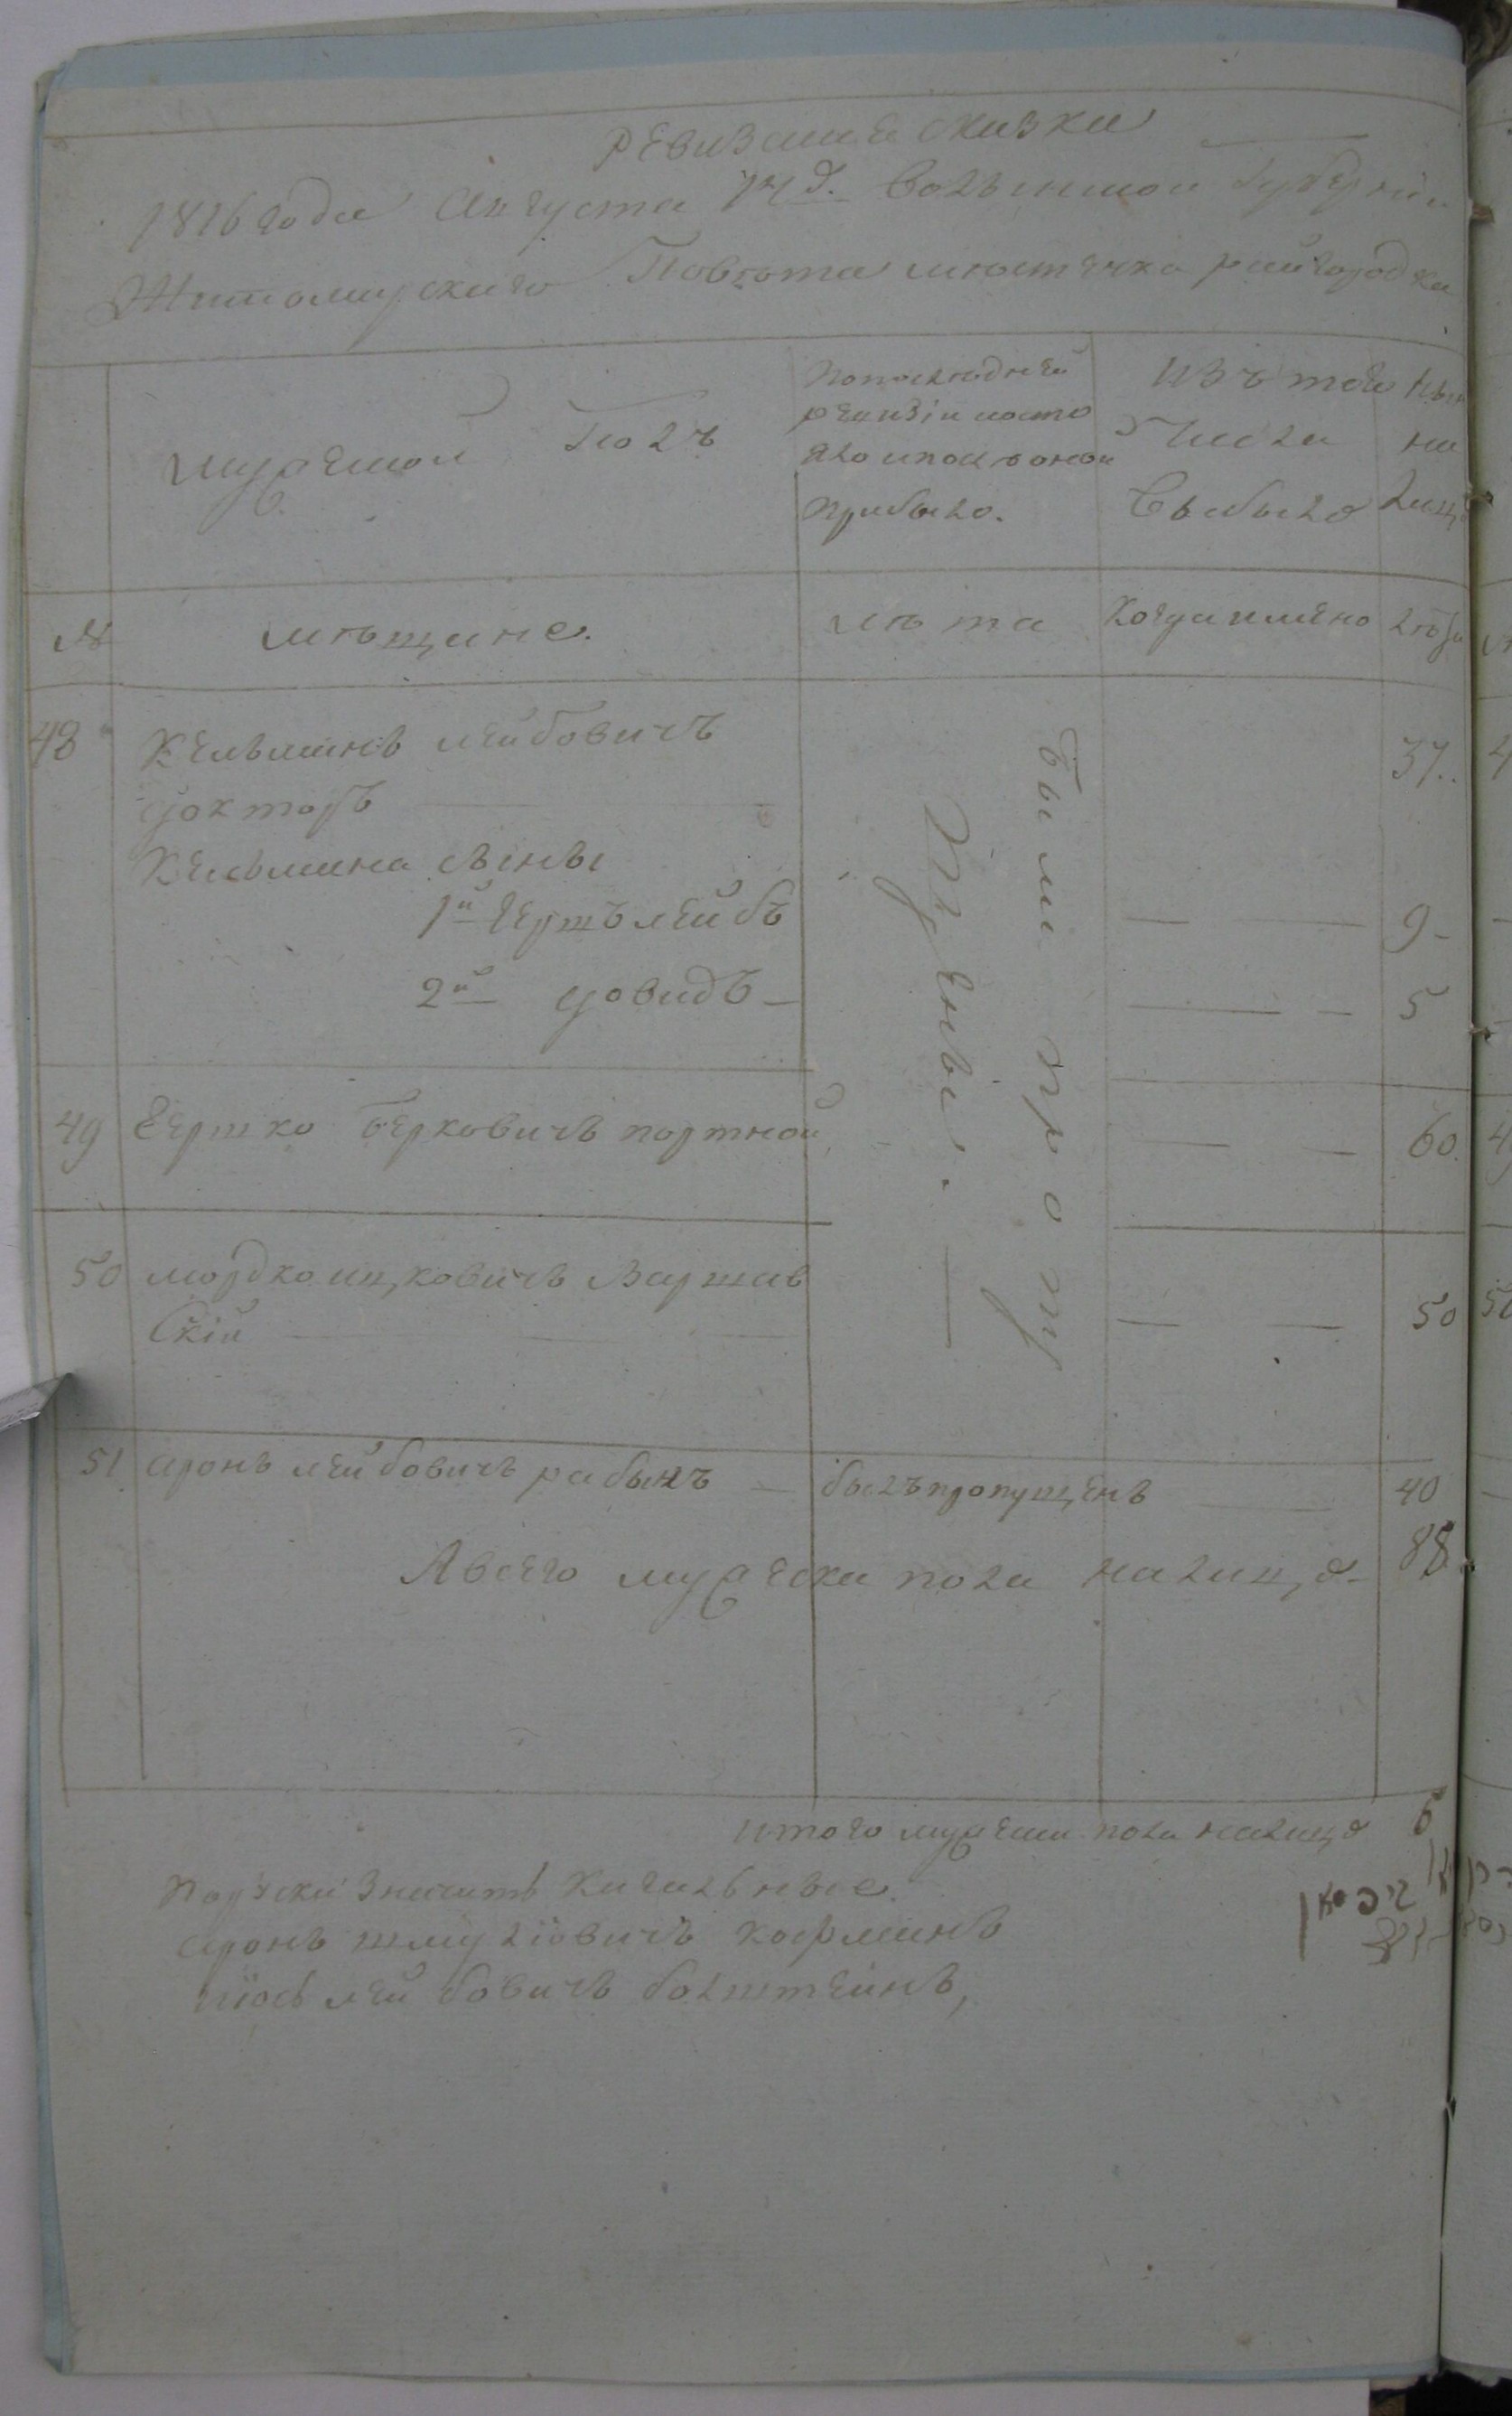 Ревизские сказки
1816 года августа 14 д. Волынской губернии
Житомирского Повѣта мѣстечка райгородка
мужеской полъ
По последней
ревизіи состо
яло и после оной
прибыло.
Изъ того
Числа
Выбыло
Нын
на
лицо
№
мѣщане.
лѣта
Когда имено
лѣта
48
Кельманъ лейбовичъ
докторъ
37..
Кельмана сыны
1й гершълейбъ
9
2й довидъ
5
были пропу
щены.
49 гершко берковичъ портной
60
50 мордко ицковичъ Варшав
скій
50
51 аронъ лейбовичъ рабынъ
былъ пропущенъ
40
А всего мужеска пола на лицо
88
итого мужеска пола на лицо 6
аронъ шмулiовичъ
лейбовичъ